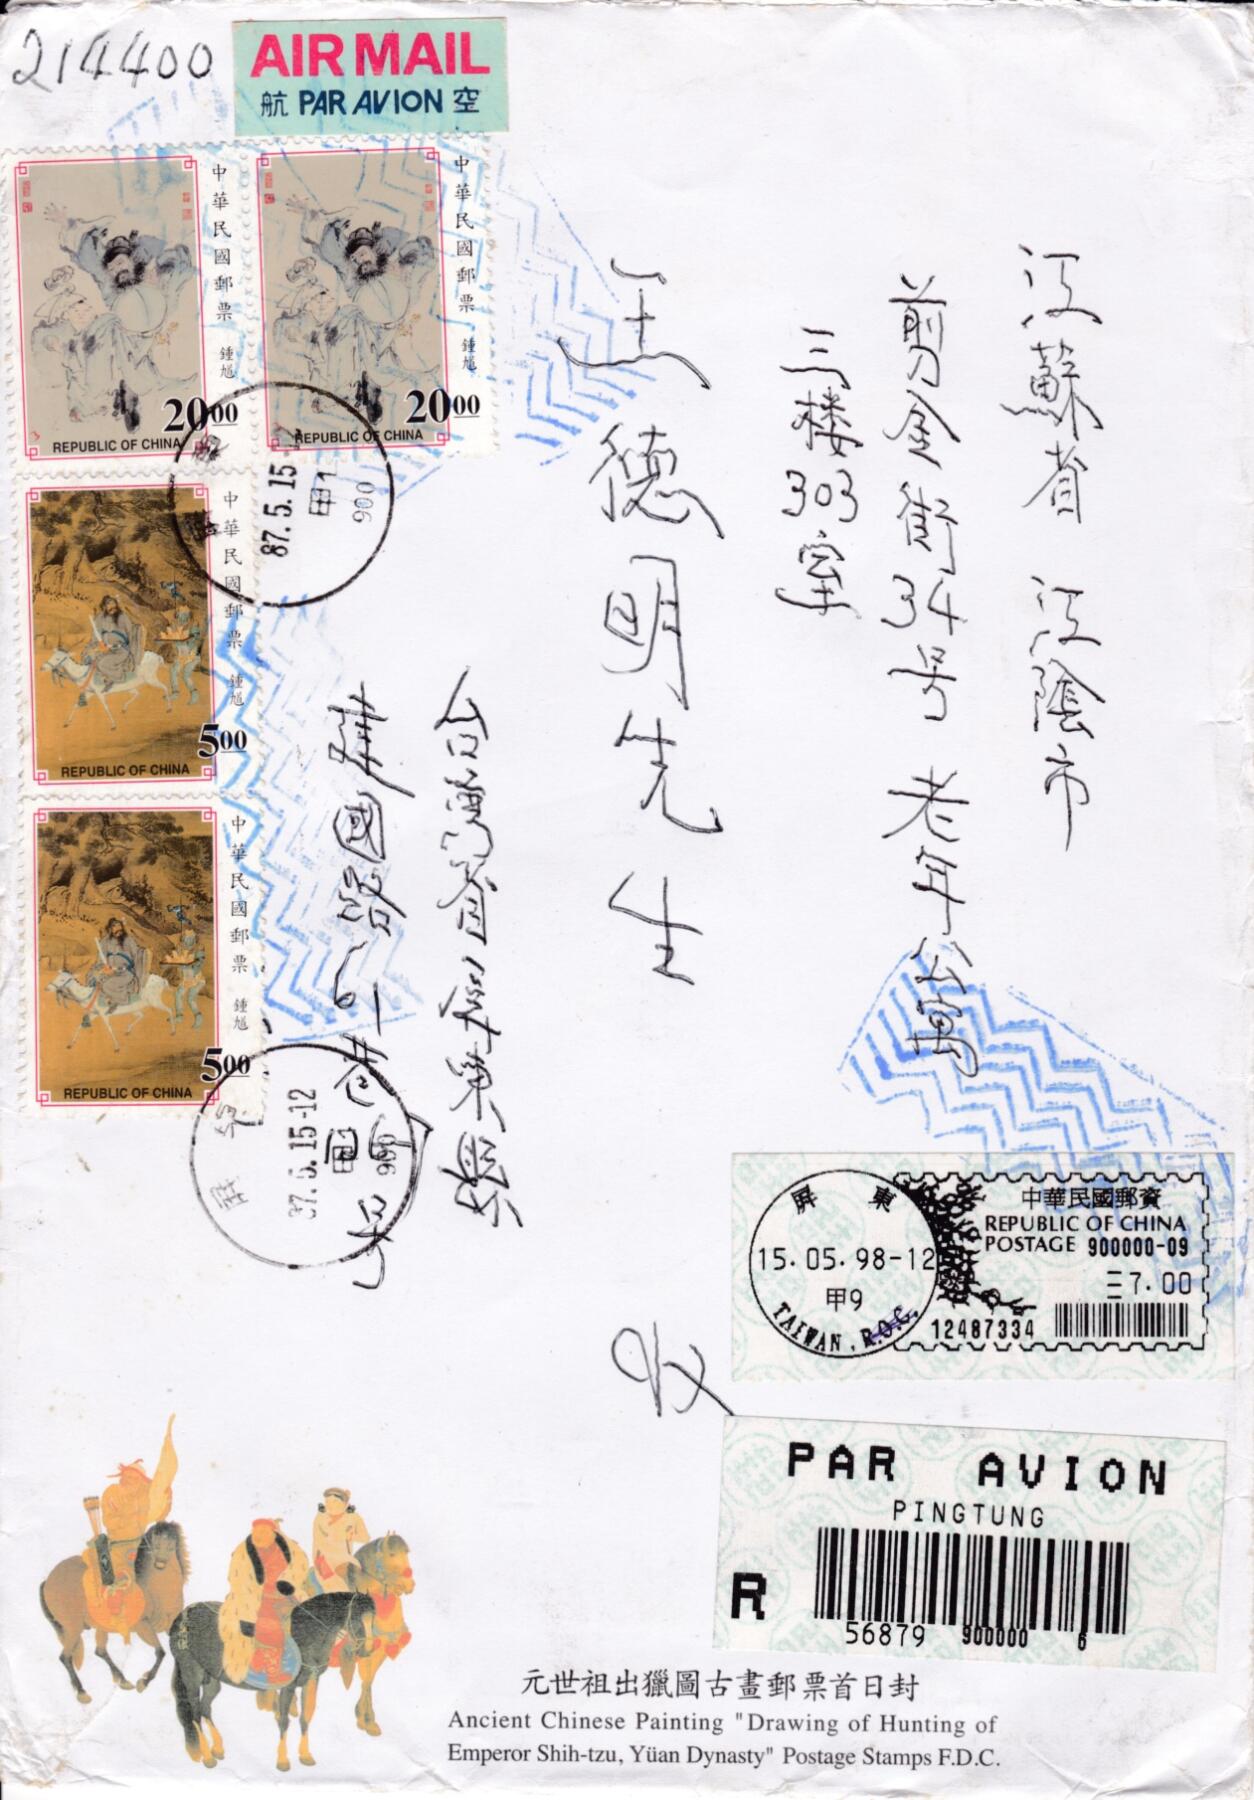 214400
AIR MAIL
航 PAR AVION 空
中華民國郵票 鍾馗
20.00
REPUBLIC OF CHINA
中華民國郵票 鍾馗
20.00
REPUBLIC OF CHINA
中華民國郵票 鍾馗
5.00
REPUBLIC OF CHINA
中華民國郵票 鍾馗
5.00
REPUBLIC OF CHINA
87.5.15
甲1
900
87.5.15-12
甲1
900
江蘇省 江陰市
剪金街34号 老年公寓
三楼303室
王德明先生 收
屏東
15.05.98-12
甲9
TAIWAN, R.O.C.
中華民國郵資
REPUBLIC OF CHINA
POSTAGE 900000-09
7.00
12487334
PAR AVION
PINGTUNG
R
56879 900000 6
元世祖出獵圖古畫郵票首日封
Ancient Chinese Painting "Drawing of Hunting of
Emperor Shih-tzu, Yüan Dynasty" Postage Stamps F.D.C.